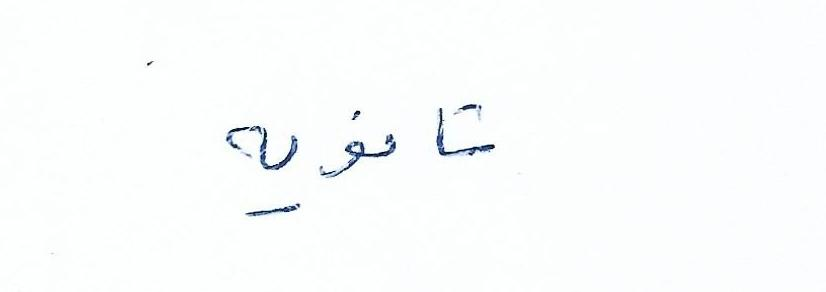 ثانويه